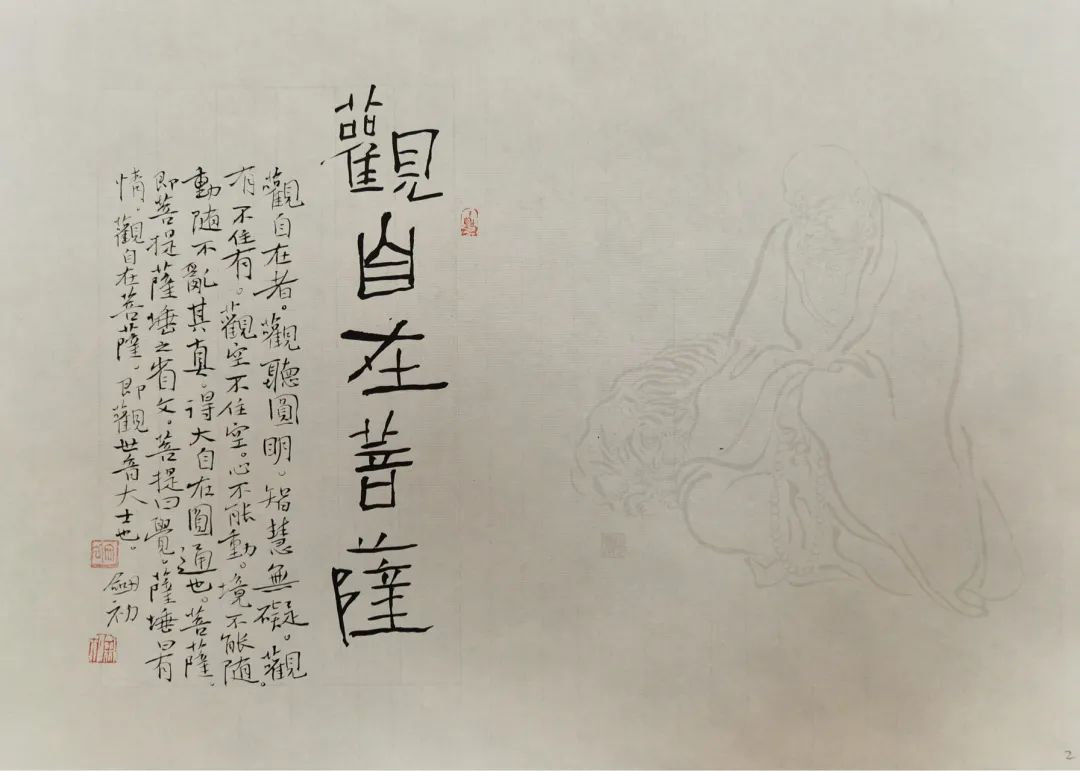 觀自在菩薩
觀自在者。觀聽圓明。智慧無礙。觀
有不住有。觀空不住空。心不能動。境不能隨。
動隨不亂其真。得大自在圓通也。菩薩。
即菩提薩埵之省文。菩提曰覺。薩埵曰有
情。觀自在菩薩。即觀世音大士也。
劍初
2